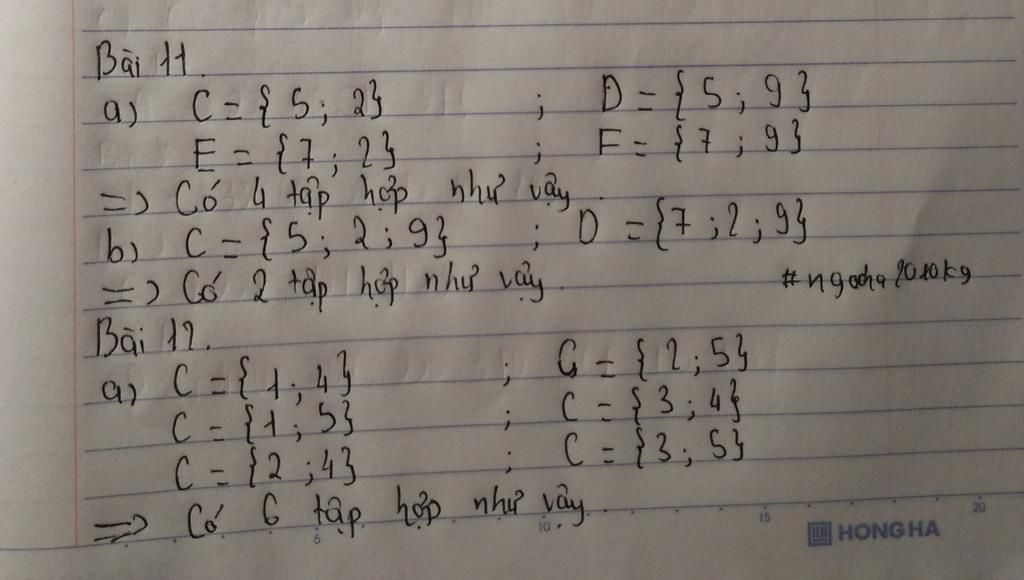 Bài 11.
a) C = { 5 ; 2} ; D = { 5 ; 9 }
E = {7 ; 2} ; F = {7 ; 9}
=> Có 4 tập hợp như vậy.
b) C = { 5 ; 2 ; 9} ; D = {7 ; 2 ; 9}
=> Có 2 tập hợp như vậy.
Bài 12.
a) C = { 1 ; 4} ; G = { 2 ; 5}
C = {1 ; 5} ; C = {3 ; 4}
C = {2 ; 4} ; C = {3 ; 5}
=> Có 6 tập hợp như vậy
5 10 15 20
HONG HA